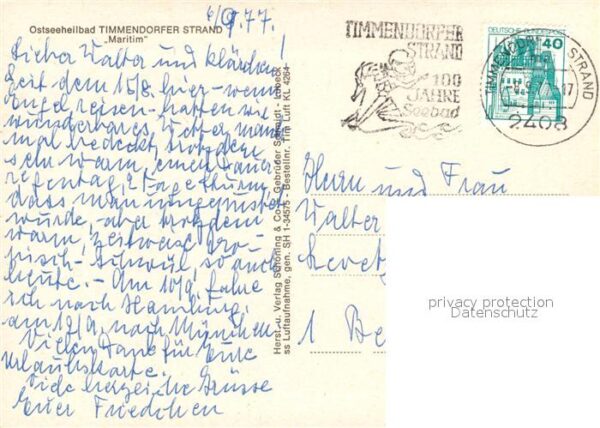 6/9.77.
Ostseeheilbad TIMMENDORFER STRAND
„Maritim"
Lieber Walter und Klärchen!
Seit dem 15/8. hier – wenn
Engel reisen – hatten wir
wunderbares Wetter, manch-
mal bedeckt, trotzdem
sehr warm, einen Dauer-
regentag, 2 Tage Sturm,
dass man umgepustet
wurde, aber trotzdem
warm, zeitweise tro-
pisch-schwül so auch
heute. – Am 10/9. fahre
ich nach Hamburg,
am 12/9. nach München
Vielen Dank für Eure
Urlaubskarte.
Viele herzliche Grüsse
Euer Friedchen
Herst. u. Verlag Schöning & Co. + Gebrüder Schmidt · Lübeck
ss Luftaufnahme, gen. SH 1-34575 - Bestellnr. Tim Luft KL 4264
TIMMENDORFER
STRAND
100
JAHRE
Seebad
DEUTSCHE BUNDESPOST
40
TIMMENDORFER STRAND
2408
Herrn und Frau
Walter
1 Be
privacy protection
Datenschutz